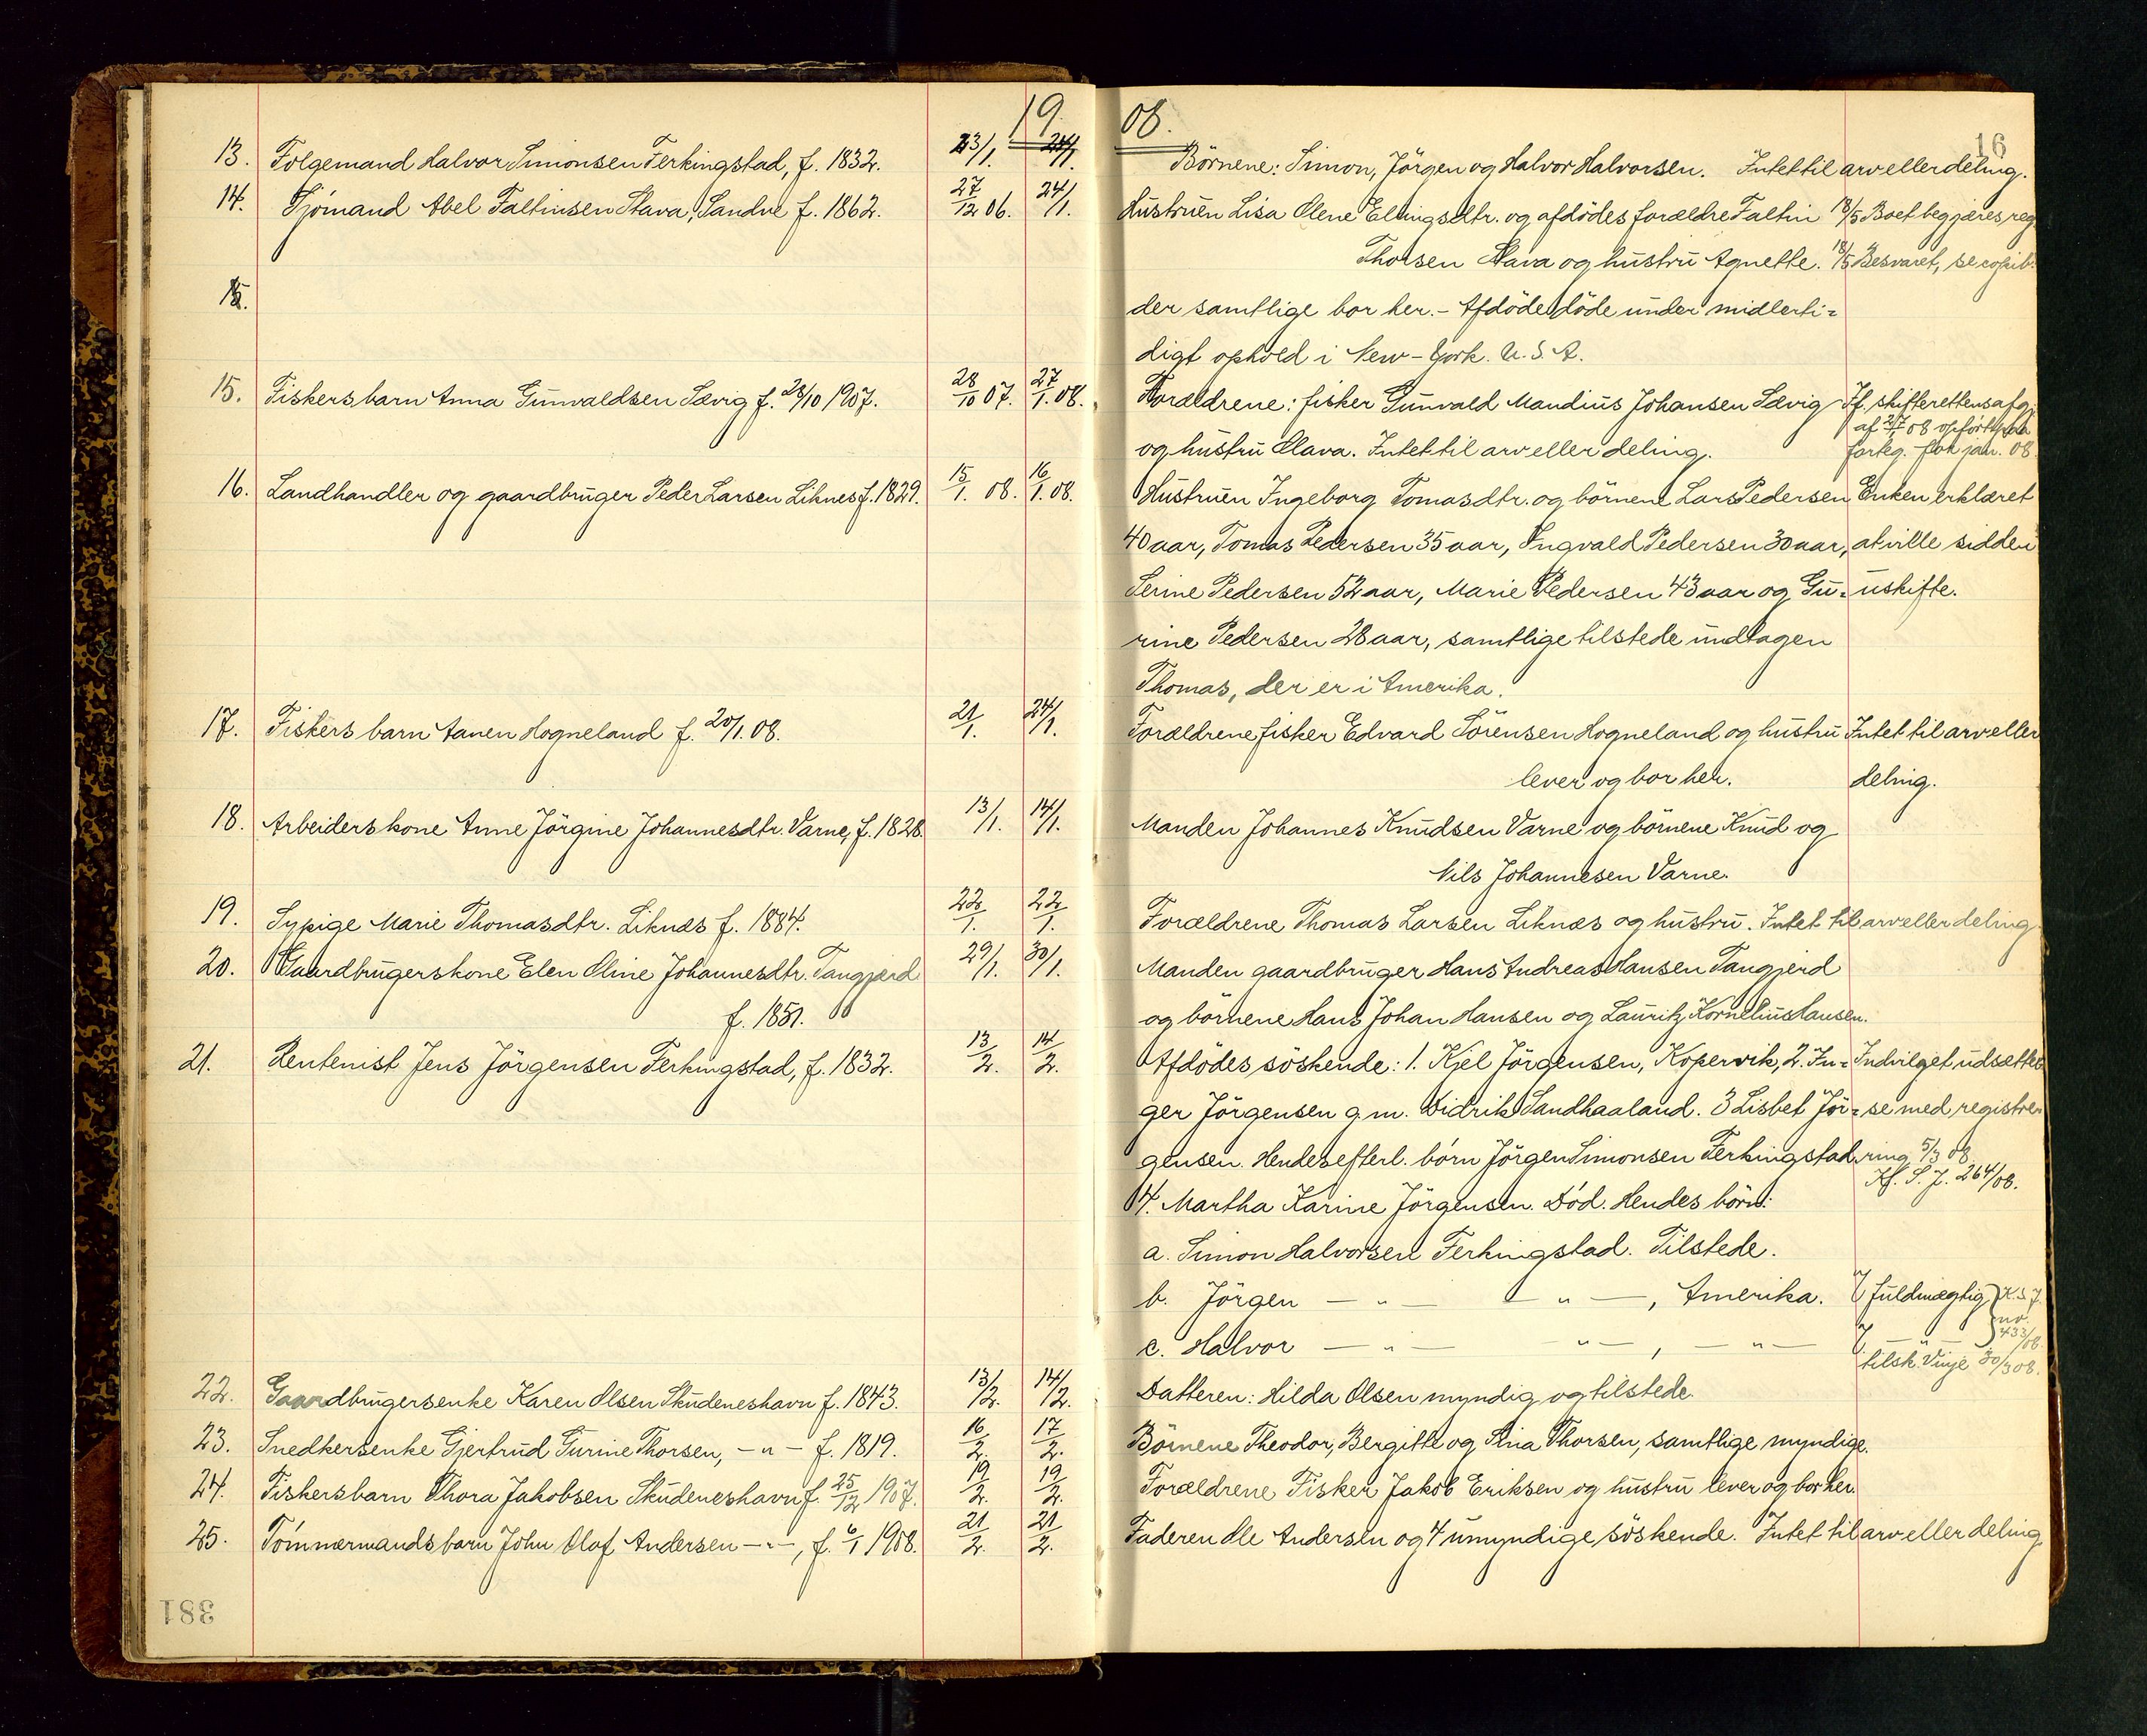 1908.
16
13. Folgemand Halvor Simonsen Ferkingstad, f. 1832. 23/1. 24/1 Börnene: Simon, Jörgen og Halvor Halvorsen. Intet til arv eller deling.
14. Sjömand Abel Faltinsen Stava, Sandve f. 1862. 27/12 06. 24/1. Hustruen Lisa Olene Elingsdtr. og afdödes forældre Faltin 18/5 Boet begjæres reg
Thorsen Stava og hustru Agnethe. 18/5 Besvaret, se copib.
15.
der samtlige bor her. - Afdöde döde under midlerti=
digt ophold i New-York. U.S.A.
15. Fiskersbarn Anna Gunvaldsen Sævig f. 28/10 1907. 28/10 07. 27/1. 08. Forældrene: fisker Gunvald Mandius Johansen Sævig Jf. skifterettens afgj.
af 27/1 08 opfört paa
og hustru Olava. Intet til arv eller deling. forteg. for jan. 08.
16. Landhandler og gaardbruger Peder Larsen Liknes f. 1829. 15/1. 08. 16/1. 08. Hustruen Ingeborg Tomasdtr. og börnene Lars Pedersen Enken erklæret
40 aar, Tomas Pedersen 35 aar, Ingvald Pedersen 30 aar, at ville sidde i
Serine Pedersen 52 aar, Marie Pedersen 43 aar og Gu= uskifte.
rine Pedersen 28 aar, samtlige tilstede undtagen
Thomas, der er i Amerika.
17. Fiskers barn Aanen Hogneland f. 20/1. 08. 21/1. 24/1. Forældrene fisker Edvard Sörensen Hogneland og hustru Intet til arv eller
lever og bor her. deling.
18. Arbeiderskone Anne Jörgine Johannesdtr. Varne, f. 1828. 13/1. 14/1. Manden Johannes Knudsen Varne og börnene Knud og
Nils Johannesen Varne.
19. Sypige Marie Thomasdtr. Liknes f. 1884. 22/1. 22/1. Forældrene Thomas Larsen Liknes og hustru. Intet til arv eller deling
20. Gaardbrugerskone Elen Oline Johannesdtr. Tangjerd 29/1. 30/1. Manden gaardbruger Hans Andreas Hansen Tangjerd
f. 1851. og börnene Hans Johan Hansen og Lauritz Kornelius Hansen.
21. Rentenist Jens Jörgensen Ferkingstad, f. 1832. 13/2. 14/2. Afdödes söskende: 1. Kjel Jörgensen, Kopervik, 2. In= Indvilget udsættel
ger Jörgensen g.m. Didrik Sandhaaland. 3 Lisbet Jör= se med registre=
gensen. Hendes efterl. börn Jörgen Simonsen Ferkingstad ring 5/3 08.
Kf. S.J. 264/08.
4. Martha Karine Jörgensen. Död. Hendes börn:
a. Simon Halvorsen Ferkingstad. Tilstede.
b. Jörgen — " — — " —, Amerika. fuldmægtig K.S.J.
no. 433/08.
c. Halvor — " — — " —, — " — — " —
tilsk. Vinje 30/3 08.
22. Gaardbrugersenke Karen Olsen Skudeneshavn f. 1843. 13/2. 14/2. Datteren: Hilda Olsen myndig og tilstede.
23. Snedkersenke Gjertrud Turine Thorsen, — " — f. 1819. 16/2. 17/2. Börnene Theodor, Bergitte og Stina Thorsen, samtlige myndige.
24. Fiskersbarn Thora Jakobsen Skudeneshavn f. 25/12 1907. 19/2. 19/2. Forældrene Fisker Jakob Eriksen og hustru lever og bor her.
25. Tömmermands barn John Olaf Andersen — " —, f. 6/1 1908. 21/2. 21/2. Faderen Ole Andersen og 4 umyndige söskende. Intet til arv eller deling
381